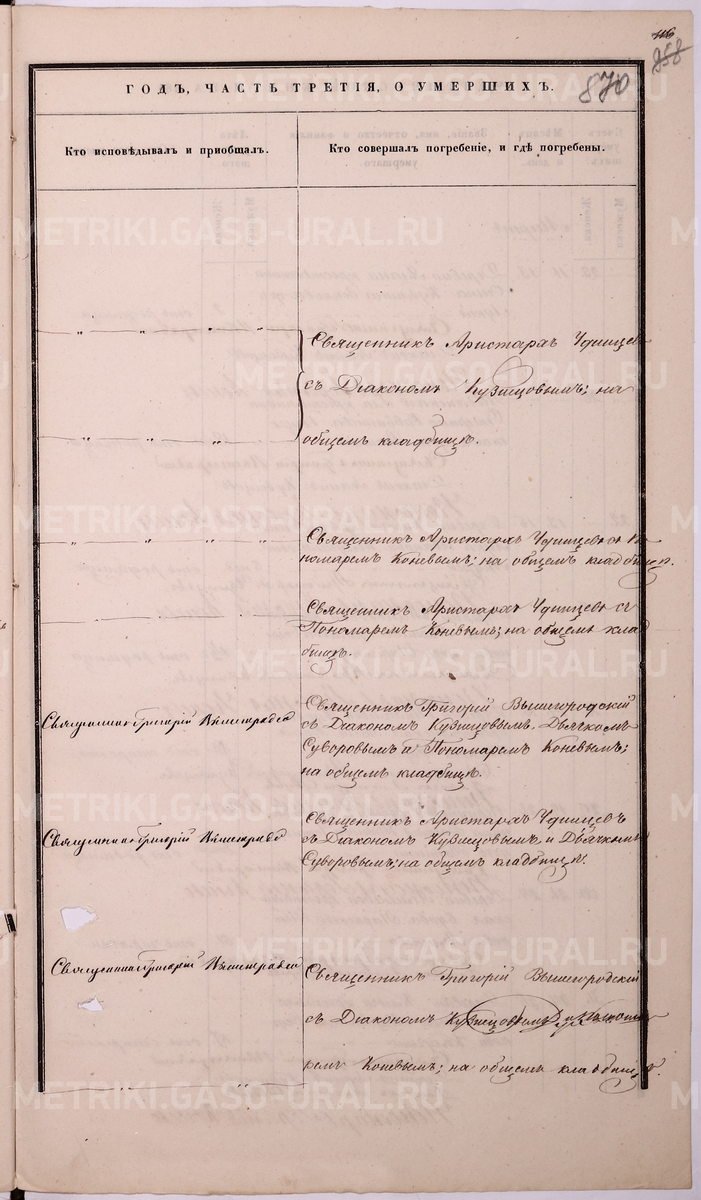 116
258
870
ГОДЪ, ЧАСТЬ ТРЕТІЯ, О УМЕРШИХЪ.
Кто исповѣдывалъ и пріобщалъ.
Кто совершалъ погребеніе, и гдѣ погребены.
Священникъ Аристархъ Удинцевъ
съ Діакономъ Кузнецовымъ; на
общемъ кладбищѣ.
Священникъ Аристархъ Удинцевъ съ По
номаремъ Коневымъ; на общемъ кладбищѣ.
Священникъ Аристархъ Удинцевъ съ
Пономаремъ Коневымъ; на общемъ клад
бищѣ.
Священникъ Григорій
Священникъ Григорій Вышегородскій
съ Діакономъ Кузнецовымъ, Дьячкомъ
Суворовымъ и Пономаремъ Коневымъ;
на общемъ кладбищѣ.
Священникъ Григорій
Священникъ Аристархъ Удинцевъ
съ Діакономъ Кузнецовымъ и Дьячкомъ
Суворовымъ; на общемъ кладбищѣ.
Священникъ Григорій
Священникъ Григорій Вышегородскій
съ Діакономъ Кузнецовымъ и Понома
ремъ Коневымъ; на общемъ кладбищѣ.
METRIKI.GASO-URAL.RU